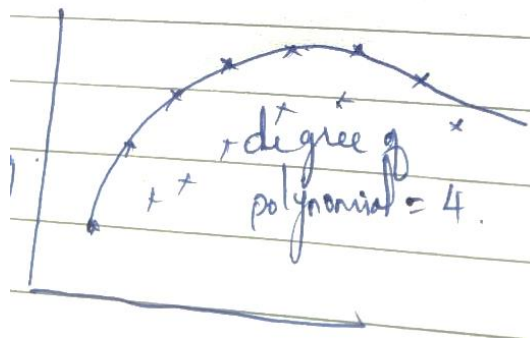 degree of
polynomial = 4.